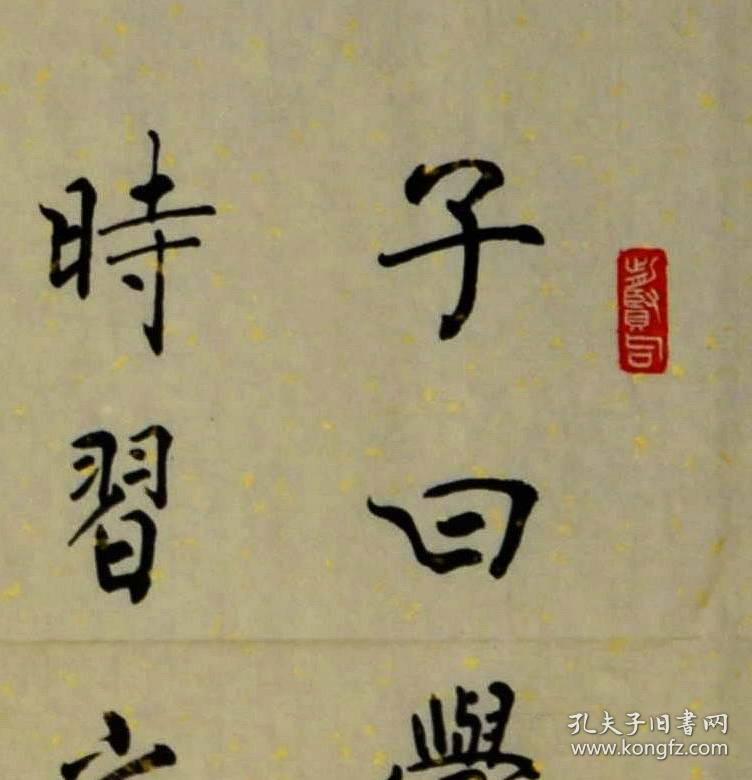 子曰學
時習
孔夫子旧書网
www.kongfz.com